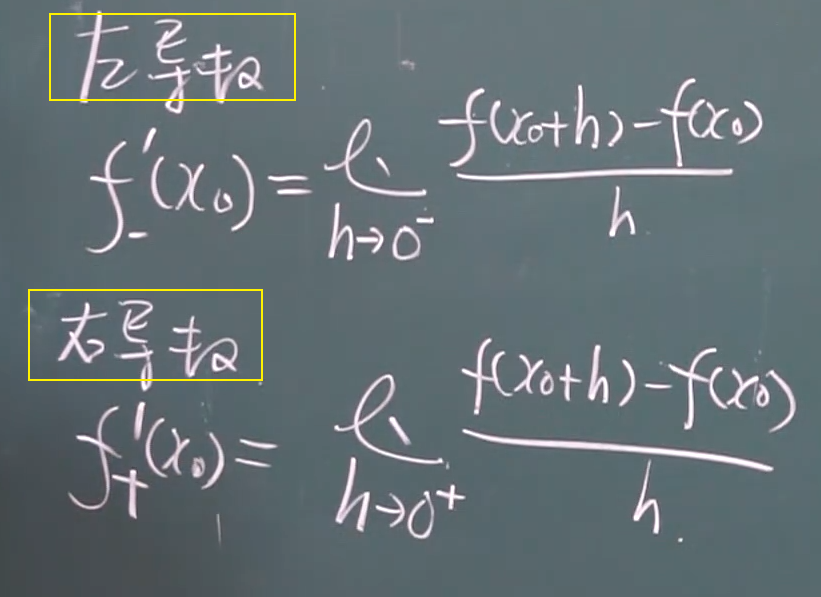 左导数
f'₋(x₀) = lim h→0⁻ (f(x₀+h)-f(x₀))/h
右导数
f'₊(x₀) = lim h→0⁺ (f(x₀+h)-f(x₀))/h